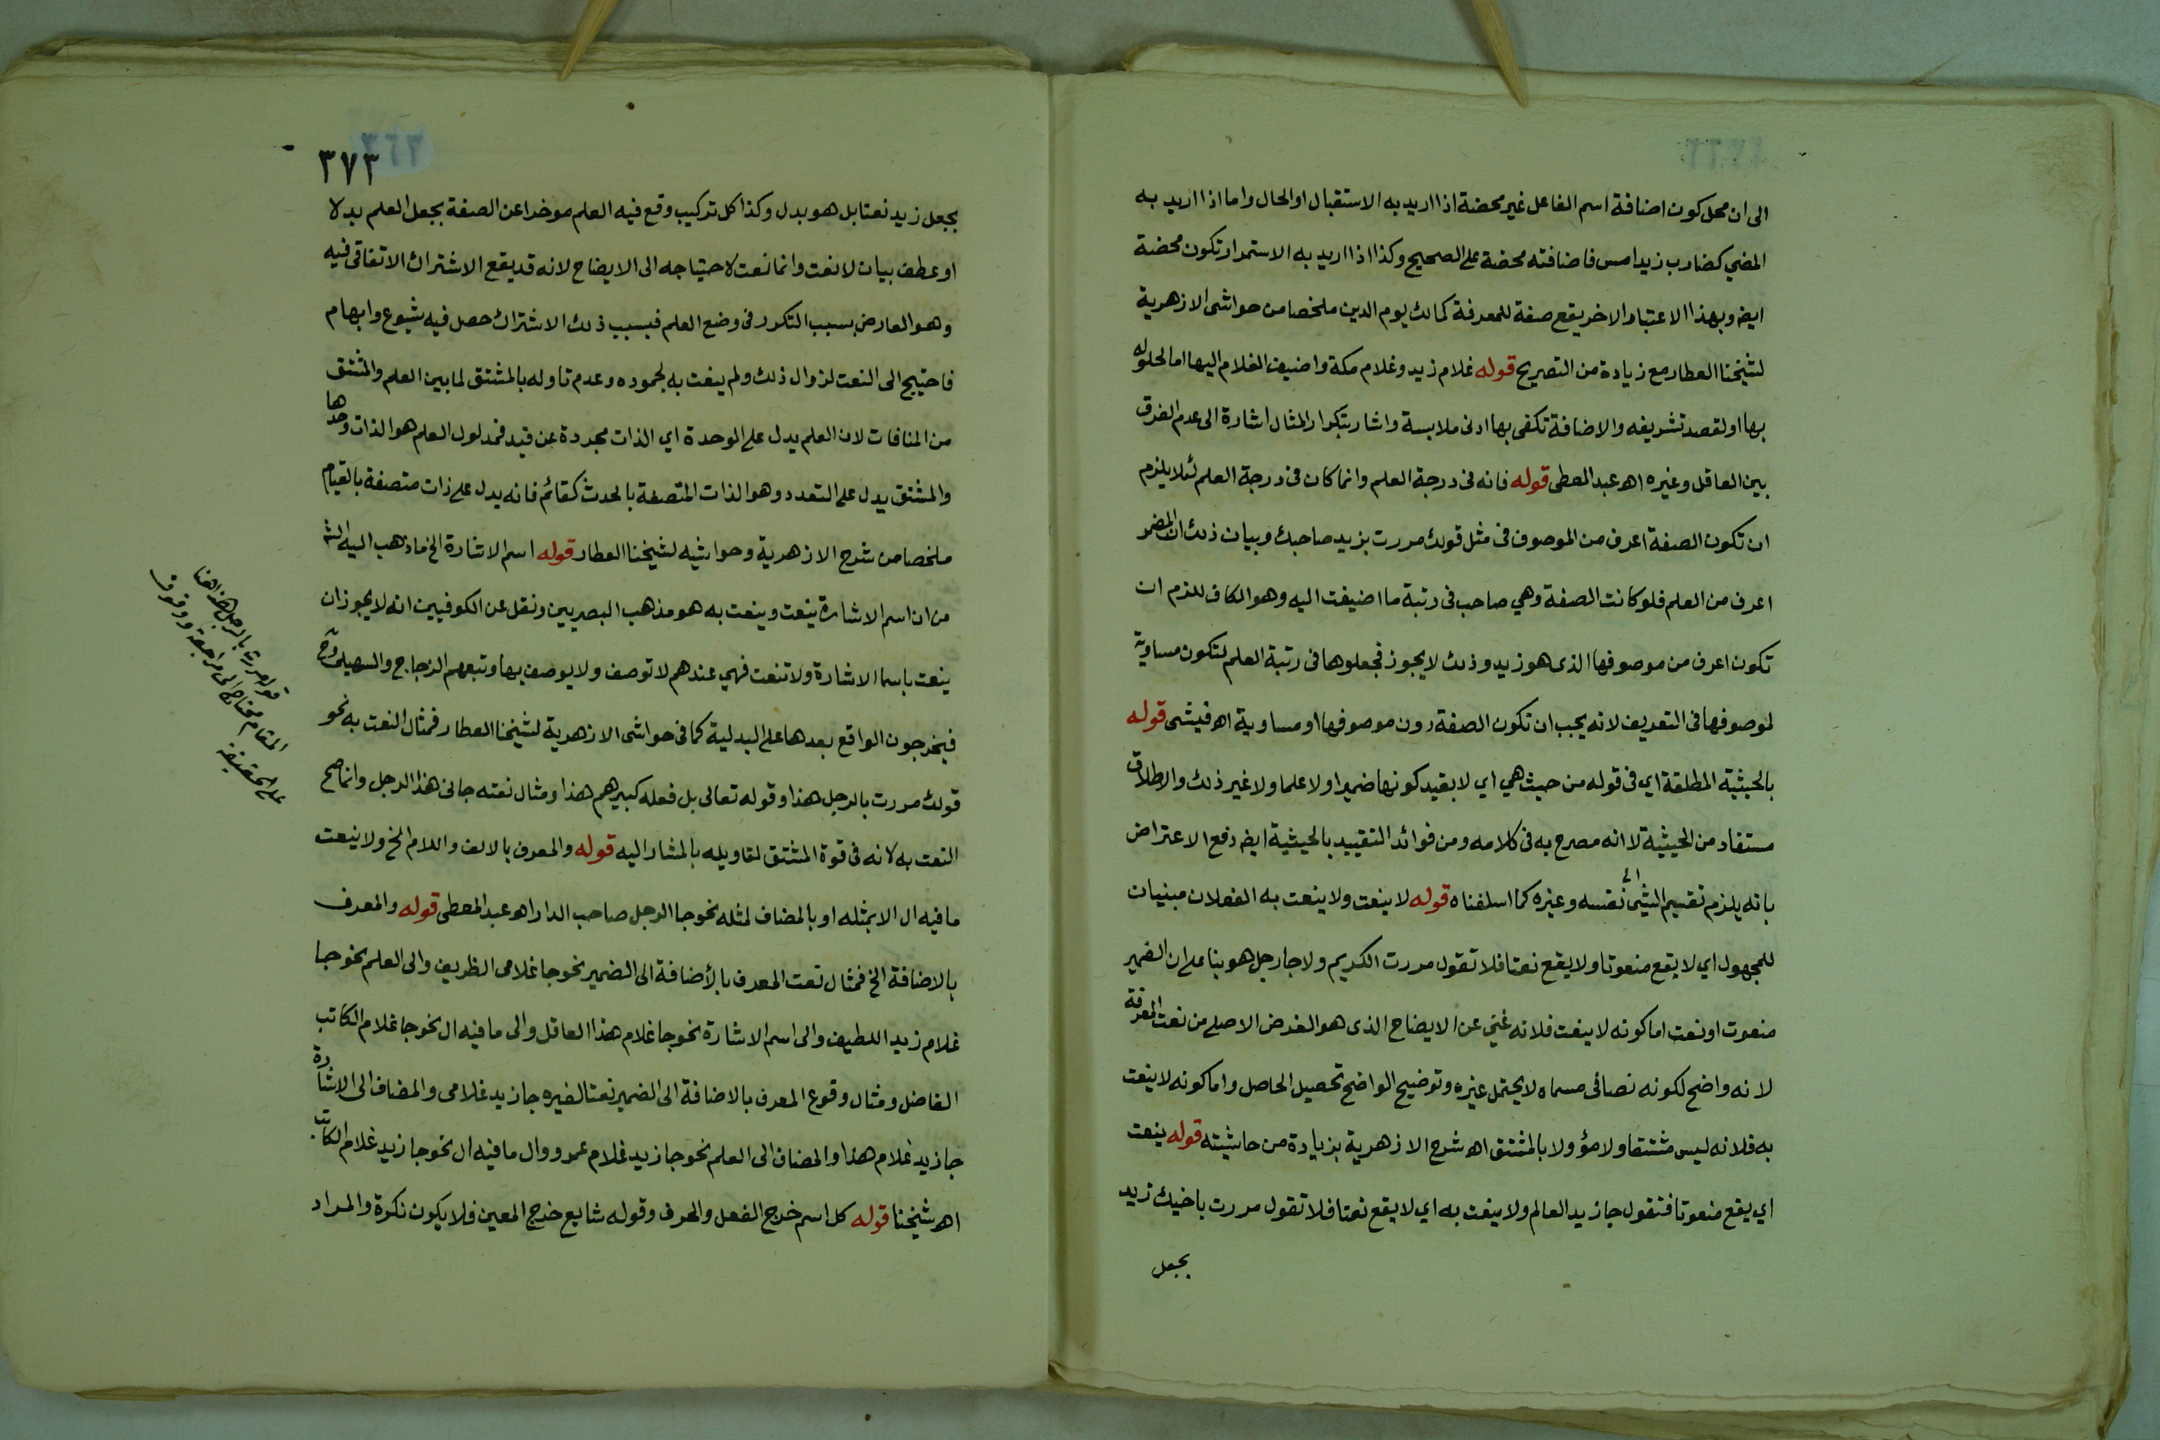 الى ان محل كون اضافة اسم الفاعل غير محضة اذا اريد به الاستقبال او الحال واما اذا اريد به
المضي كضارب زيد امس فاضافته محضة على الصحيح وكذا اذا اريد به الاستمرار تكون محضة
ايض وبهذا الاعتبار الاخر يقع صفة للمعرفة كمالك يوم الدين ملخصا من حواشى الازهرية
لشيخنا العطار مع زيادة من التصريح قوله غلام زيد وغلام مكة واضيف الغلام اليها اما لحلوله
بها او لقصد تشريفه والاضافة تكفى بها ادنى ملابسة واشار بتكرار المثال اشارة الى عدم الفرق
بين العاقل وغيره اهـ عبد المعطى قوله فانه فى درجة العلم وانما كان فى درجة العلم لئلا يلزم
ان تكون الصفة اعرف من الموصوف فى مثل قولك مررت بزيد صاحبك وبيان ذلك ان المضمر
اعرف من العلم فلو كانت الصفة وهي صاحب فى رتبة ما اضيفت اليه وهو الكاف للزم ان
تكون اعرف من موصوفها الذى هو زيد وذلك لا يجوز فجعلوها فى رتبة العلم لتكون مساوية
لموصوفها فى التعريف لانه يجب ان تكون الصفة دون موصوفها او مساوية اهـ فيشى قوله
بالحيثية المطلقة اي فى قوله من حيث هي اي لا بقيد كونها ضميرا ولا علما ولا غير ذلك والاطلاق
مستفاد من الحيثية لا انه مصرح به فى كلامه ومن فوائد التقييد بالحيثية ايض دفع الاعتراض
بانه يلزم تقسيم الشئ الى نفسه وغيره كما اسلفناه قوله لا ينعت ولا ينعت به الفعلان مبنيان
للمجهول اي لا يقع منعوتا ولا يقع نعتا فلا تقول مررت الكريم ولا جا رجل هو بنا على ان الضمير
منعوت او نعت اما كونه لا ينعت فلانه غني عن الايضاح الذى هو الغرض الاصلى من نعت المعرفة
لانه واضح لكونه نصا فى مسماه لا يحتمل غيره وتوضيح الواضح تحصيل الحاصل واما كونه لا ينعت
به فلانه ليس مشتقا ولا مؤولا بالمشتق اهـ شرح الازهرية بزيادة من حاشيته قوله ينعت
اي يقع منعوتا فتقول جا زيد العالم ولا ينعت به اي لا يقع نعتا فلا تقول مررت باخيك زيد
بجعل
٣٧٣
بجعل زيد نعتا بل هو بدل وكذا كل تركيب وقع فيه العلم موخرا عن الصفة بجعل العلم بدلا
او عطف بيان لا نعت وانما نعت لاحتياجه الى الايضاح لانه قد يقع الاشتراك الاتفاقى فيه
وهو العارض بسبب التكرر فى وضع العلم فبسبب ذلك الاشتراك حصل فيه شيوع وابهام
فاحتيج الى النعت لزوال ذلك ولم ينعت به لجموده وعدم تاوله بالمشتق لما بين العلم والمشتق
من المنافات لان العلم يدل على الوحدة اي الذات مجردة عن قيد فمدلول العلم هو الذات وحدها
والمشتق يدل على التعدد وهو الذات المتصفة بالحدث كقائم فانه يدل على ذات متصفة بالقيام
ملخصا من شرح الازهرية وحواشيه لشيخنا العطار قوله اسم الاشارة الخ ما ذهب اليه الش
من ان اسم الاشارة ينعت وينعت به هو مذهب البصريين ونقل عن الكوفيين انه لا يجوز ان
ينعت باسما الاشارة ولا تنعت فهي عندهم لا توصف ولا يوصف بها وتبعهم الزجاج والسهيلى وح
فيخرجون الواقع بعدها على البدلية كما فى حواشى الازهرية لشيخنا العطار فمثال النعت به نحو
قولك مررت بالرجل هذا وقوله تعالى بل فعله كبيرهم هذا ومثال نعته جانى هذا الرجل وانما صح
النعت به لانه فى قوة المشتق لتاويله بالمشار اليه قوله والمعرف بالالف واللام الخ ولا ينعت
ما فيه ال الا بمثله او بالمضاف لمثله نحو جا الرجل صاحب الدار اهـ عبد المعطى قوله والمعرف
بالاضافة الخ فمثال نعت المعرف بالأضافة الى الضمير نحو جا غلامى الظريف والى العلم نحو جا
غلام زيد اللطيف والى اسم الاشارة نحو جا غلام هذا العاقل والى ما فيه ال نحو جا غلام الكاتب
الفاضل ومثال وقوع المعرف بالاضافة الى الضمير نعتا لغيره جا زيد غلامى والمضاف الى الاشارة
جا زيد غلام هذا والمضاف الى العلم نحو جا زيد غلام عمرو وال ما فيه ال نحو جا زيد غلام الكاتب
اهـ شيخنا قوله كل اسم خرج الفعل والحرف وقوله شايع خرج المعين فلا يكون نكرة والمراد
قوله مررت بالرجل هذا هنا
المقام محتاج الى مراجعة ووقوف
على الحقيقة